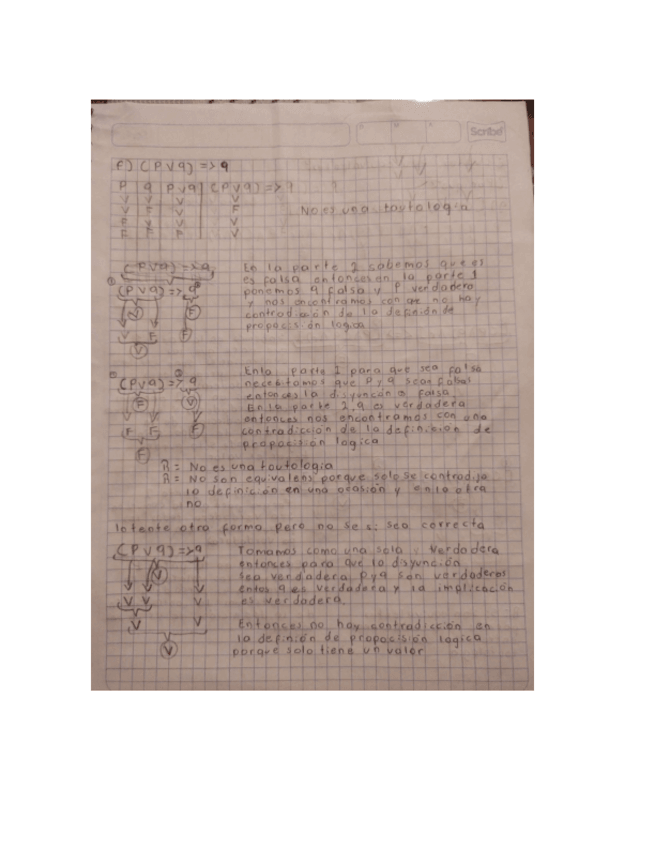 Scribe
F) (P ∨ q) => q
P q P ∨ q (P ∨ q) => q
V V V V
V F V F
F V V V
F F F V
No es una toutologia
(P ∨ q) => q
(P ∨ q) => q
V F F
V
En la parte 2 sabemos que es
es falsa entonces en la parte 1
ponemos q falsa y P verdadero
y nos encontramos con que no hay
contradicion de la definón de
propocisión logica
(P ∨ q) => q
F V
F F F
F
En la parte 1 para que sea falsa
necesitamos que P y q sean
entonces la disyunción falsa.
En la parte 2, q es verdadera
entonces nos encontramos con una
contradicción de la definición de
propocisión logica
R = No es una toutologia
R = No son porque solo se contradijo
la definición en una ocasión y en la otra
no
Intente otra forma pero no se si sea correcta
(P ∨ q) => q
V
V V V
V V
V
Tomamos como una sola y Verdadera
entonces para que la disyunción
sea verdadera P y q son verdaderos
entos q es verdadera y la implicación
es verdadera.
Entonces no hay contradicción en
la definión de propocisión logica
porque solo tiene un valor